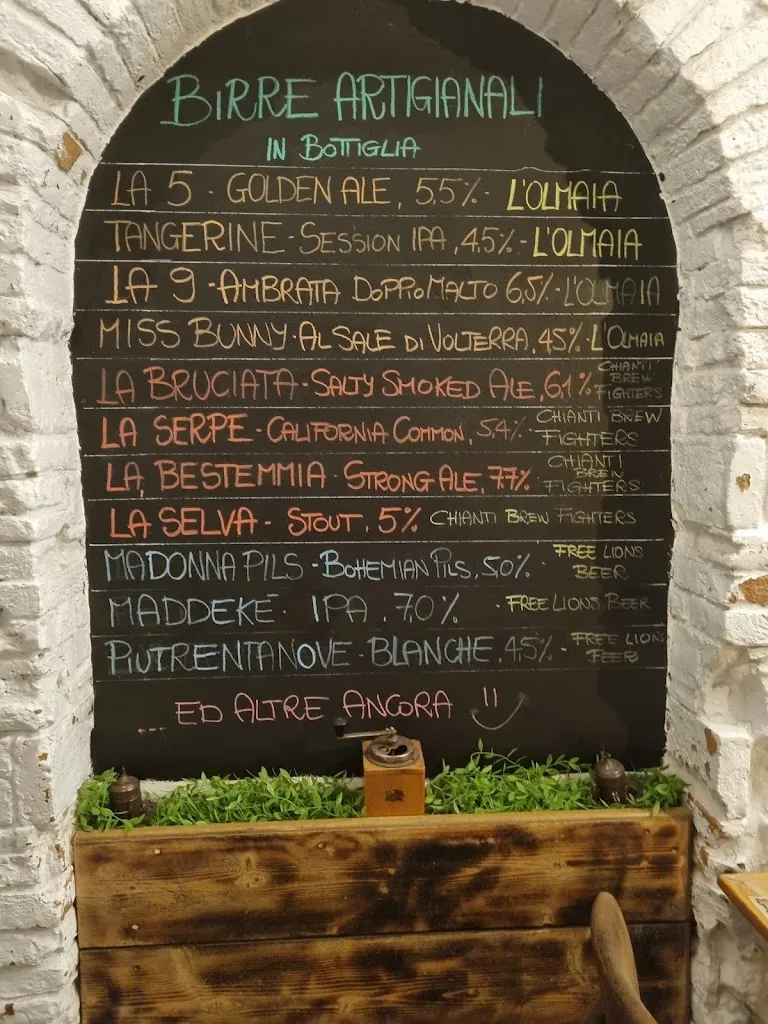 BIRRE ARTIGIANALI
IN BOTTIGLIA
LA 5 - GOLDEN ALE, 5.5% - L'OLMAIA
TANGERINE - SESSION IPA, 4.5% - L'OLMAIA
LA 9 - AMBRATA DOPPO MALTO 6,5% - L'OLMAIA
MISS BUNNY - AL SALE DI VOLTERRA, 4.5% - L'OLMAIA
LA BRUCIATA - SALTY SMOKED ALE, 6,1% CHIANTI BREW FIGHTERS
LA SERPE - CALIFORNIA COMMON, 5,4% - CHIANTI BREW FIGHTERS
LA BESTEMMIA - STRONG ALE, 7.7% CHIANTI BREW FIGHTERS
LA SELVA - STOUT, 5% CHIANTI BREW FIGHTERS
MADONNA PILS - BOHEMIAN PILS, 5,0% - FREE LIONS BEER
MADDEKÈ - IPA, 7,0% - FREE LIONS BEER
PIUTRENTANOVE - BLANCHE, 4,5% - FREE LIONS BEER
... ED ALTRE ANCORA !!